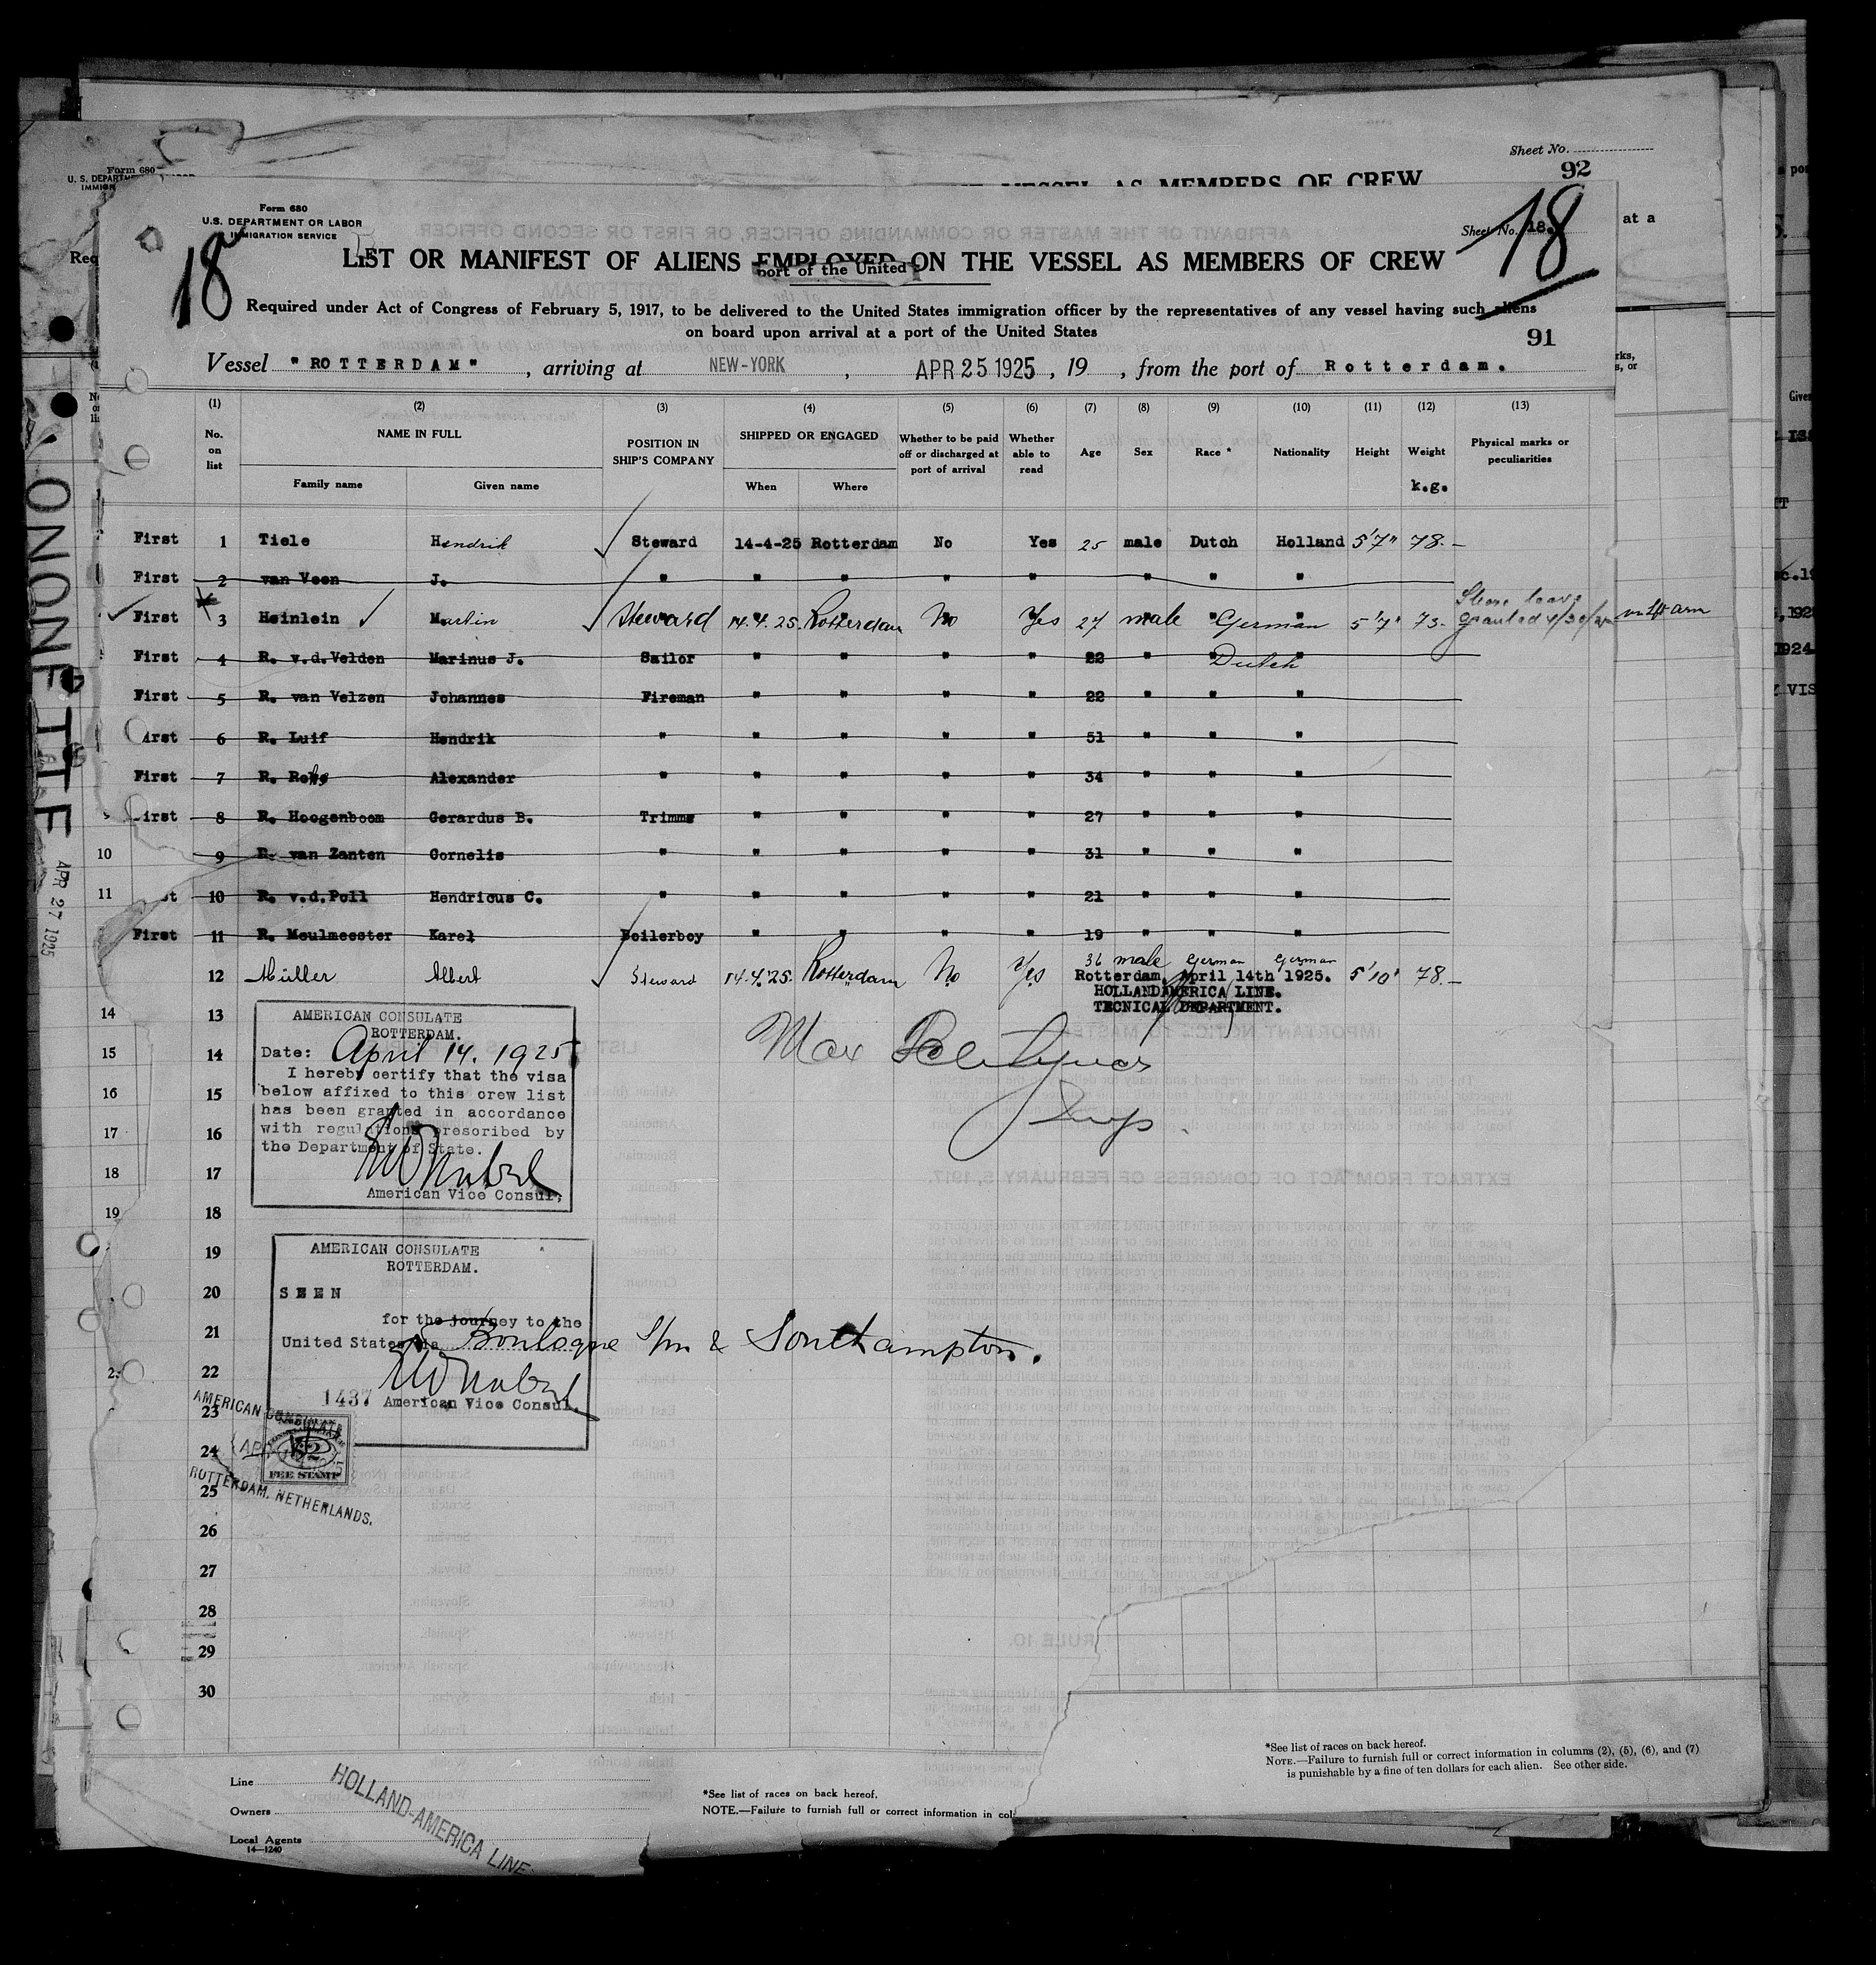 Sheet No.
92
Form 680
OF CREW
AS MEMBERS
Form 680
U.S. DEPARTMENT OR LABOR
IMMIGRATION SERVICE
18
Sheet No. 18.
18
LIST OR MANIFEST OF ALIENS EMPLOYED ON THE VESSEL AS MEMBERS OF CREW
port of the United
at a
Required under Act of Congress of February 5, 1917, to be delivered to the United States immigration officer by the representatives of any vessel having such aliens
on board upon arrival at a port of the United States
91
Vessel "ROTTERDAM", arriving at NEW-YORK, APR 25 1925, 19 , from the port of Rotterdam.
(1) (2) (3) (4) (5) (6) (7) (8) (9) (10) (11) (12) (13)
No. on list
NAME IN FULL
Family name
Given name
POSITION IN SHIP'S COMPANY
SHIPPED OR ENGAGED
When
Where
Whether to be paid off or discharged at port of arrival
Whether able to read
Age
Sex
Race *
Nationality
Height
Weight
k.g.
Physical marks or peculiarities
First 1 Tiele Hendrik Steward 14-4-25 Rotterdam No Yes 25 male Dutch Holland 5'7" 78.-
First 2 van Veen J. " " " " " " " "
First 3 Heinlein Martin Steward 14.4.25. Rotterdam No Yes 27 male German 5'7" 73- Shore leave granted
First 4 R. v.d.Velden Marinus J. Sailor " " " " 22 " Dutch "
First 5 R. van Velzen Johannes Fireman " " " " 22 " " "
First 6 R. Luif Hendrik " " " " " 51 " " "
First 7 R. Alexander " " " " " 34 " " "
First 8 R. Hoogenboom Gerardus B. Trimms " " " " 27 " " "
10 9 R. van Zanten Cornelis " " " " " 31 " " "
11 10 R. v.d.Poll Hendricus C. " " " " " 21 " " "
First 11 R. Meulmeester Karel Boilerboy " " " " 19 " " "
12 Müller Albert Steward 14.4.25. Rotterdam No Yes 36 male German German 5'10" 78.-
Rotterdam, April 14th 1925.
HOLLAND AMERICA LINE.
TECNICAL DEPARTMENT.
14 13
15 14
16 15
17 16
18 17
19 18
19
20
21
22
23
24
25
26
27
28
29
30
AMERICAN CONSULATE
ROTTERDAM.
Date: April 14. 1925
I hereby certify that the visa
below affixed to this crew list
has been granted in accordance
with regulations prescribed by
the Department of State.
American Vice Consul,
AMERICAN CONSULATE
ROTTERDAM.
SEEN
for the journey to the
United States via Boulogne S/m & Southampton.
1437 American Vice Consul.
AMERICAN CONSULATE
FEE STAMP
ROTTERDAM, NETHERLANDS.
APR 27 1925
Line
Owners
Local Agents
14—1240
HOLLAND-AMERICA LINE
*See list of races on back hereof.
NOTE.—Failure to furnish full or correct information in col
*See list of races on back hereof.
NOTE.—Failure to furnish full or correct information in columns (2), (5), (6), and (7)
is punishable by a fine of ten dollars for each alien. See other side.